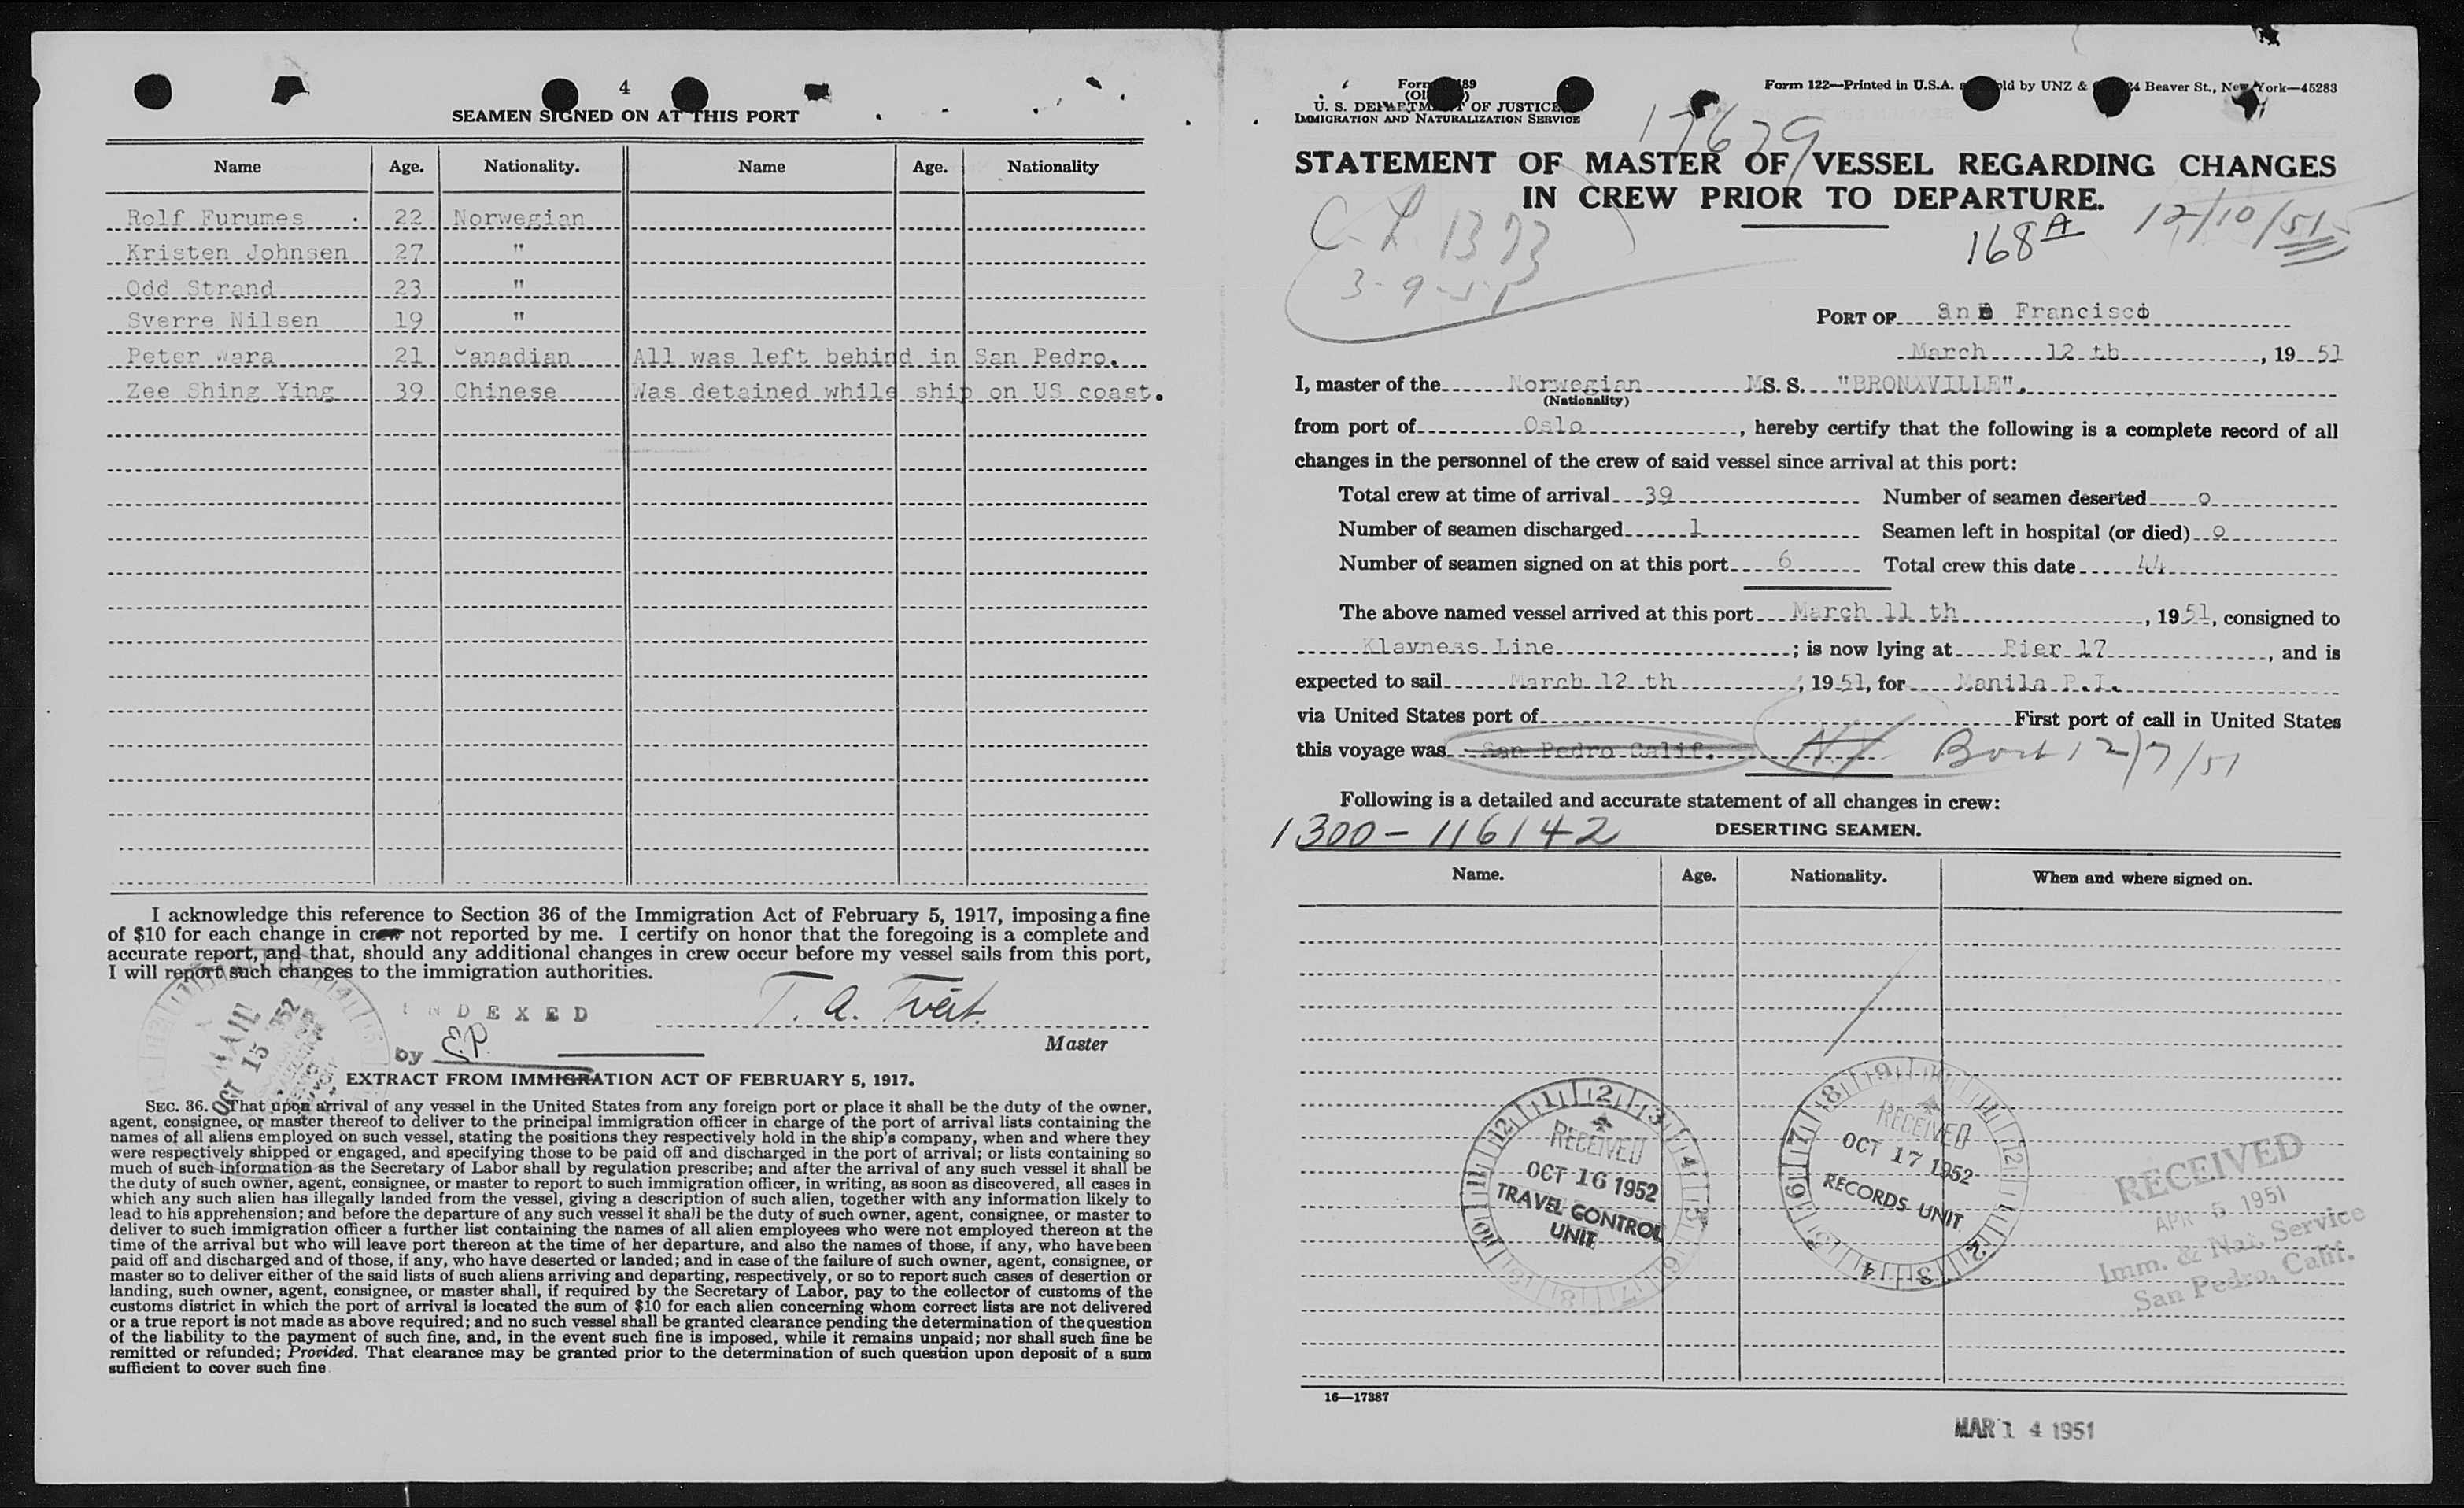 4
SEAMEN SIGNED ON AT THIS PORT
Name Age. Nationality. Name Age. Nationality
Rolf Furumes 22 Norwegian
Kristen Johnsen 27 "
Odd Strand 23 "
Sverre Nilsen 19 "
Peter Wara 21 Canadian All was left behind in San Pedro.
Zee Shing Ying 39 Chinese Was detained while ship on US coast.
I acknowledge this reference to Section 36 of the Immigration Act of February 5, 1917, imposing a fine
of $10 for each change in crew not reported by me. I certify on honor that the foregoing is a complete and
accurate report, and that, should any additional changes in crew occur before my vessel sails from this port,
I will report such changes to the immigration authorities.
MAIL
OCT 15 1952
INDEXED
by E.P.
T. A. Tveit.
Master
EXTRACT FROM IMMIGRATION ACT OF FEBRUARY 5, 1917.
SEC. 36. That upon arrival of any vessel in the United States from any foreign port or place it shall be the duty of the owner,
agent, consignee, or master thereof to deliver to the principal immigration officer in charge of the port of arrival lists containing the
names of all aliens employed on such vessel, stating the positions they respectively hold in the ship's company, when and where they
were respectively shipped or engaged, and specifying those to be paid off and discharged in the port of arrival; or lists containing so
much of such information as the Secretary of Labor shall by regulation prescribe; and after the arrival of any such vessel it shall be
the duty of such owner, agent, consignee, or master to report to such immigration officer, in writing, as soon as discovered, all cases in
which any such alien has illegally landed from the vessel, giving a description of such alien, together with any information likely to
lead to his apprehension; and before the departure of any such vessel it shall be the duty of such owner, agent, consignee, or master to
deliver to such immigration officer a further list containing the names of all alien employees who were not employed thereon at the
time of the arrival but who will leave port thereon at the time of her departure, and also the names of those, if any, who have been
paid off and discharged and of those, if any, who have deserted or landed; and in case of the failure of such owner, agent, consignee, or
master so to deliver either of the said lists of such aliens arriving and departing, respectively, or so to report such cases of desertion or
landing, such owner, agent, consignee, or master shall, if required by the Secretary of Labor, pay to the collector of customs of the
customs district in which the port of arrival is located the sum of $10 for each alien concerning whom correct lists are not delivered
or a true report is not made as above required; and no such vessel shall be granted clearance pending the determination of the question
of the liability to the payment of such fine, and, in the event such fine is imposed, while it remains unpaid; nor shall such fine be
remitted or refunded; Provided, That clearance may be granted prior to the determination of such question upon deposit of a sum
sufficient to cover such fine.
Form 89
U. S. DEPARTMENT OF JUSTICE
IMMIGRATION AND NATURALIZATION SERVICE
Form 122—Printed in U.S.A. old by UNZ & 24 Beaver St., New York—45283
17679
STATEMENT OF MASTER OF VESSEL REGARDING CHANGES
IN CREW PRIOR TO DEPARTURE.
C-L 1373
3-9-51
168A
12/10/51
PORT OF San Francisco
March 12 th, 19 51
I, master of the Norwegian MS. S. "BRONXVILLE".
(Nationality)
from port of Oslo, hereby certify that the following is a complete record of all
changes in the personnel of the crew of said vessel since arrival at this port:
Total crew at time of arrival 39 Number of seamen deserted 0
Number of seamen discharged 1 Seamen left in hospital (or died) 0
Number of seamen signed on at this port 6 Total crew this date 44
The above named vessel arrived at this port March 11 th, 19 51, consigned to
Klaveness Line; is now lying at Pier 17, and is
expected to sail March 12 th, 19 51, for Manila P.I.
via United States port of First port of call in United States
this voyage was San Pedro Calif. NY Bost 12/7/51
Following is a detailed and accurate statement of all changes in crew:
1300-116142
DESERTING SEAMEN.
Name. Age. Nationality. When and where signed on.
RECEIVED
OCT 16 1952
TRAVEL CONTROL
UNIT
RECEIVED
OCT 17 1952
RECORDS UNIT
RECEIVED
APR 6 1951
Imm. & Nat. Service
San Pedro, Calif.
16—17387
MAR 14 1951